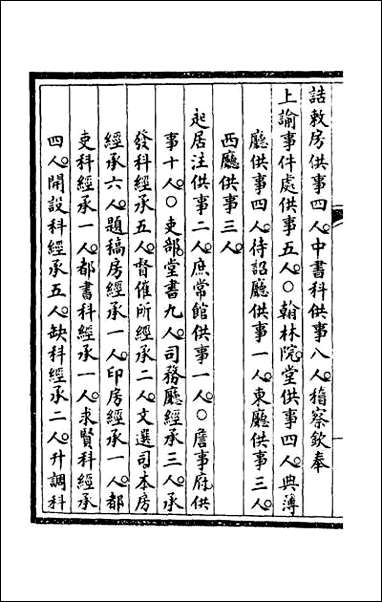 誥敕房供事四人中書科供事八人稽察欽奉
上諭事件處供事五人○翰林院堂供事四人典簿
廳供事四人侍詔廳供事一人東廳供事三人
西廳供事三人
起居注供事二人庶常館供事一人○詹事府供
事十人○吏部堂書九人司務廳經承三人承
發科經承五人督催所經承二人文選司本房
經承六人題稿房經承一人印房經承一人都
吏科經承一人都書科經承一人求賢科經承
四人開設科經承五人缺科經承二人升調科